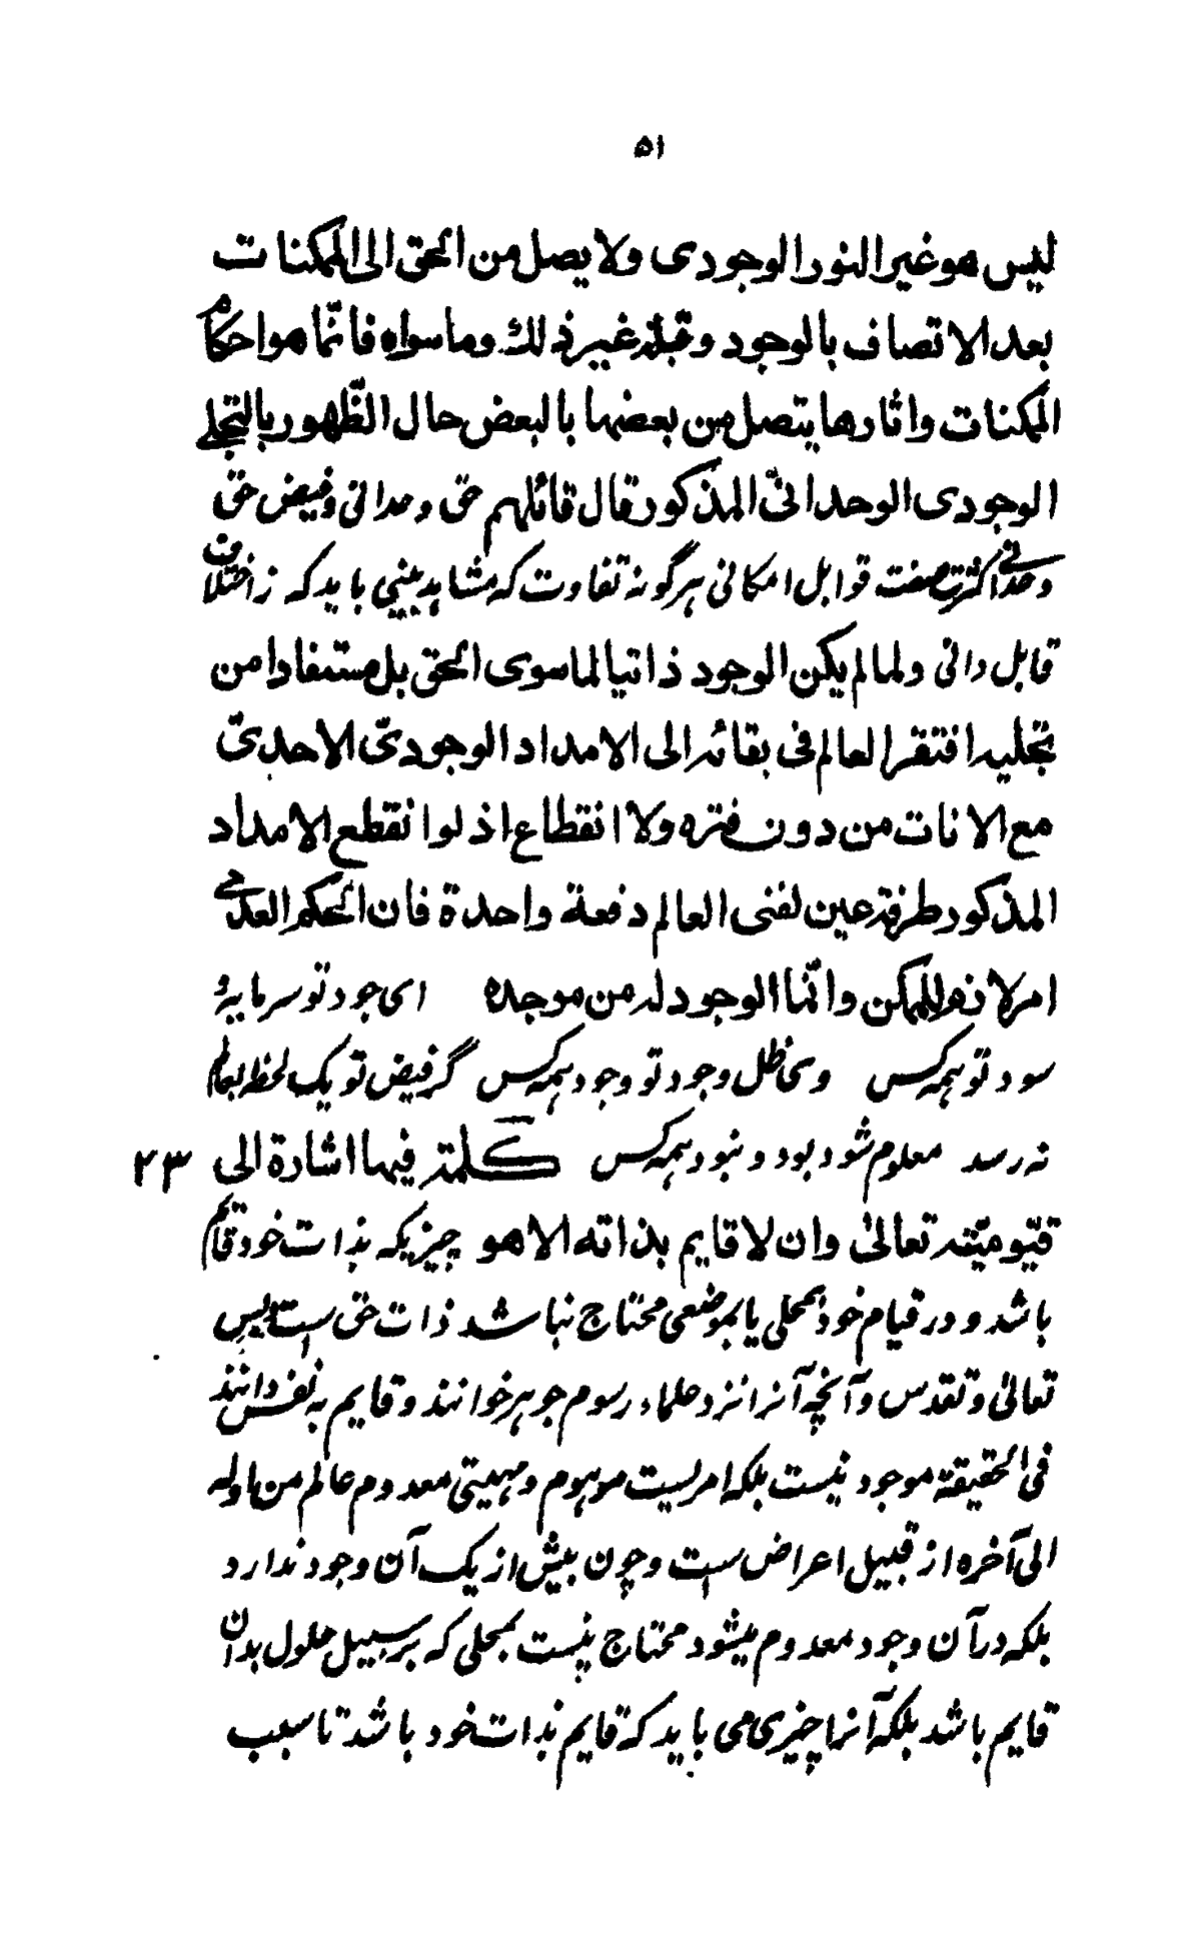 ۵۱
ليس هو غير النور الوجودى ولا يصل من الحق الى الممكنات
بعد الاتصاف بالوجود وقبله غير ذلك وما سواه فانّما هو احكام
الممكنات واثارها يتصل من بعضها بالبعض حال الظّهور بالتجلى
الوجودى الوحدانىّ المذكور قال قائلهم حق وحدانی و فیض حق
وحدانی کثرت صفت قوابل امکانی هر گونه تفاوت که مشاهد بینی باید که ز اختلاف
قابل دانی ولما لم يكن الوجود ذاتيا لما سوى الحق بل مستفادا من
تجليه افتقر العالم فى بقائه الى الامداد الوجودىّ الاحدىّ
مع الانات من دون فتره ولا انقطاع اذ لو انقطع الامداد
المذكور طرفة عين لفنى العالم دفعة واحدة فان الحكم العدمى
امر لازم للممكن وانّما الوجود له من موجده ای جود تو سرمایهٔ
سود تو همه کس وی ظل وجود تو وجود همه کس گر فیض تو یک لحظه بعالم
نه رسد معلوم شود بود و نبود همه کس كلمة فيها اشارة الى ۲۳
قيّوميّته تعالىٰ وان لا قايم بذاته الا هو چیزیکه بذات خود قایم
باشد و در قیام خود بمحلی یا بموضعی محتاج نباشد ذات حق ست و بس
تعالیٰ و تقدس و آنچه آنرا نزد علماء رسوم جوهر خوانند و قایم به نفس دانند
فی الحقیقة موجود نیست بلکه امریست موهوم و مهیتی معدوم عالم من اوله
الی آخره از قبیل اعراض ست و چون بیش از یک آن وجود ندارد
بلکه در آن وجود معدوم میشود محتاج نیست بمحلی که بر سبیل حلول بدان
قایم باشد بلکه آنرا چیزی می باید که قایم بذات خود باشد تا سبب